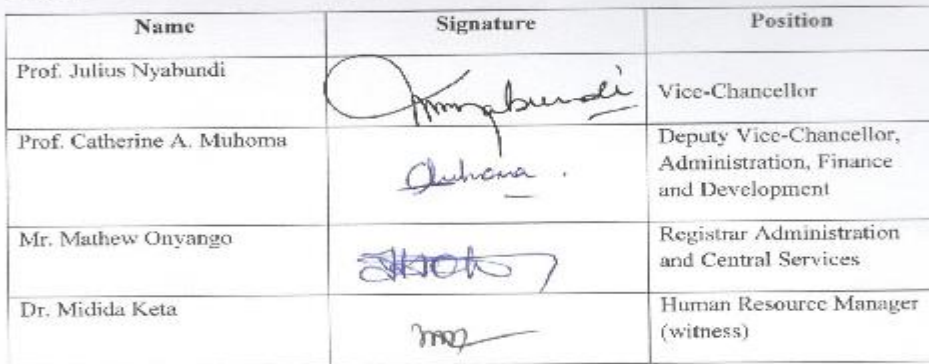 Name Signature Position
Prof. Julius Nyabundi
Vice-Chancellor
Prof. Catherine A. Muhoma
Deputy Vice-Chancellor,
Administration, Finance
and Development
Mr. Mathew Onyango
Registrar Administration
and Central Services
Dr. Midida Keta
Human Resource Manager
(witness)